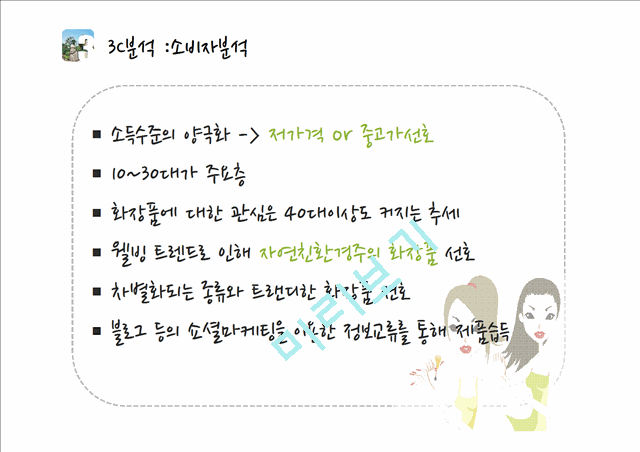 3C분석 :소비자분석
소득수준의 양극화 -> 저가격 or 중고가선호
10~30대가 주요층
화장품에 대한 관심은 40대이상도 커지는 추세
웰빙 트렌드로 인해 자연친환경주의 화장품 선호
차별화되는 종류와 트랜디한 화장품 선호
블로그 등의 소셜마케팅을 이용한 정보교류를 통해 제품습득
미리보기